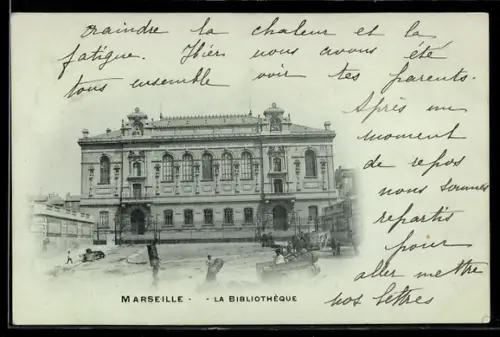 craindre la chaleur et la
fatigue. Hier nous avons été
tous ensemble voir tes parents.
Après un
moment
de repos
nous sommes
repartis
pour
aller mettre
nos lettres
MARSEILLE - - LA BIBLIOTHÈQUE